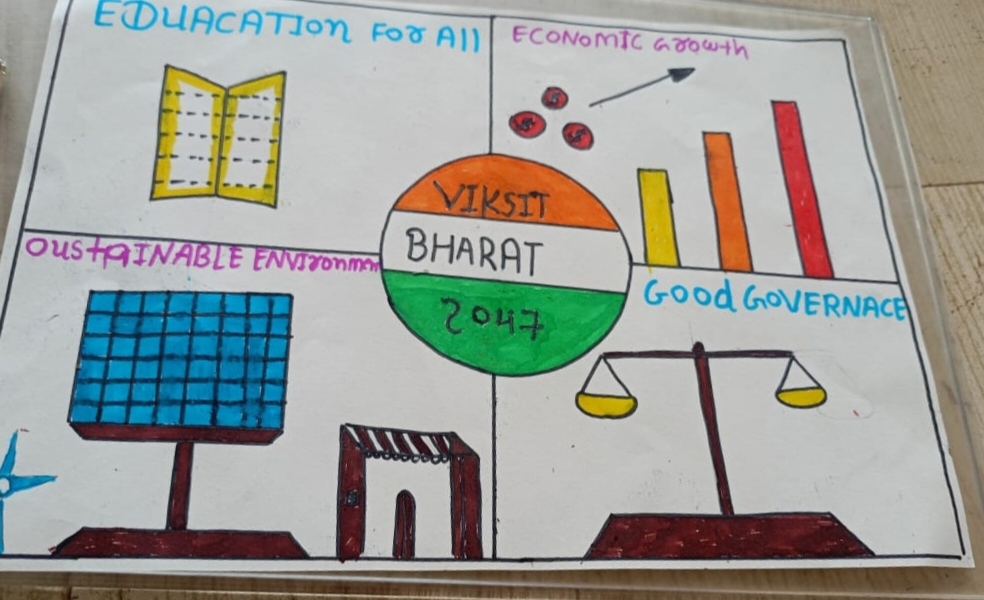 EDUACATION FOR All
ECONOMIC Growth
VIKSIT
BHARAT
2047
OUStAINABLE ENVIronmen
GOOd GOVERNACE